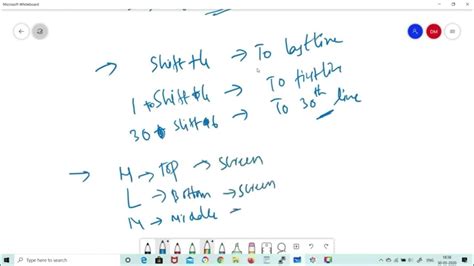 Microsoft Whiteboard
DM
→ Shift+G → To last line
1 to Shift+G → To first line
30 Shift+G → To 30th line
→ H → Top → Screen
L → Bottom → Screen
M → Middle →
18:38
30-05-2020